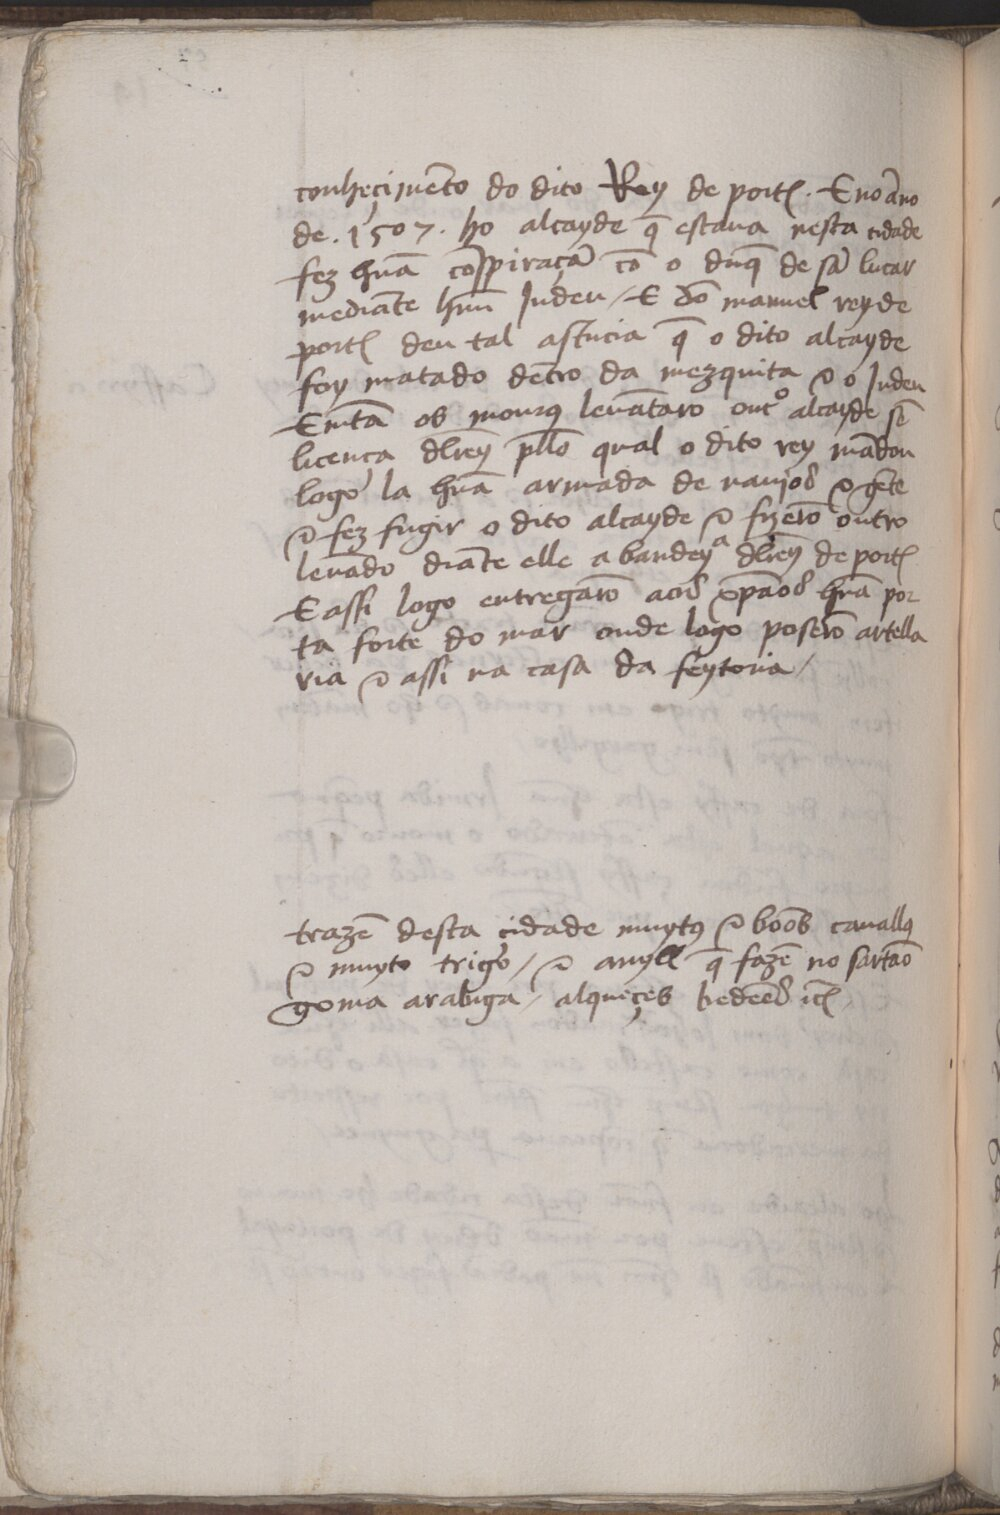 conheçimēto do dito Rey de portl. E no āno
de .1507. ho alcayde q̄ estaua nesta cidade
fez huā cōspiraçā cō o duq̄ de sā lucar
mediāte hūu Judeu / E dō manuel rey de
portl deu tal astucia q̄ o dito alcayde
foy matado dētro da mezquita ⁊ o Judeu
Entā os mourꝯ leuātarō outº alcayde sē
licença dlrey pllo qual o dito rey mādou
logo la huā armada de nauios ⁊ gēte
⁊ fez fugir o dito alcayde ⁊ fizerō outro
leuādo diāte elle a bandeyª dlrey de portl
E assi logo entregarō aos xpāos huā por
ta forte do mar onde logo poserō artella
ria ⁊ assi na casa da feytoria /
trazē desta çidade muytꝯ ⁊ boōs cauallꝯ
⁊ muyto trigo / ⁊ anyll q̄ fazē no sartaō
goma arabiga / alqueçes bedeēs